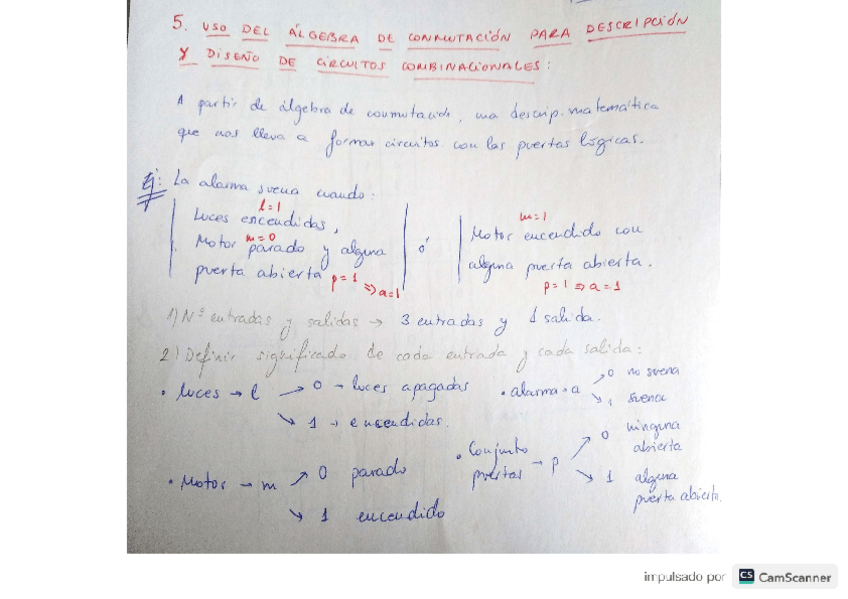 5. USO DEL ÁLGEBRA DE CONMUTACIÓN PARA DESCRIPCIÓN
Y DISEÑO DE CIRCUITOS COMBINACIONALES:
A partir de álgebra de conmutación, una descrip. matemática
que nos lleva a formar circuitos con las puertas lógicas.
Ej: La alarma suena cuando:
l=1
Luces encendidas,
m=0
Motor parado y alguna
puerta abierta p=1
⇒ a=1
ó
m=1
Motor encendido con
alguna puerta abierta.
p=1 ⇒ a=1
1) Nº entradas y salidas → 3 entradas y 1 salida.
2) Definir significado de cada entrada y cada salida:
• Luces → l → 0 → luces apagadas
↘ 1 → encendidas.
• alarma → a ↗ 0 no suena
↘ 1 suena
• Motor → m ↗ 0 parado
↘ 1 encendido
• Conjunto
puertas → p ↗ 0 ninguna
abierta
↘ 1 alguna
puerta abierta.
impulsado por CS CamScanner